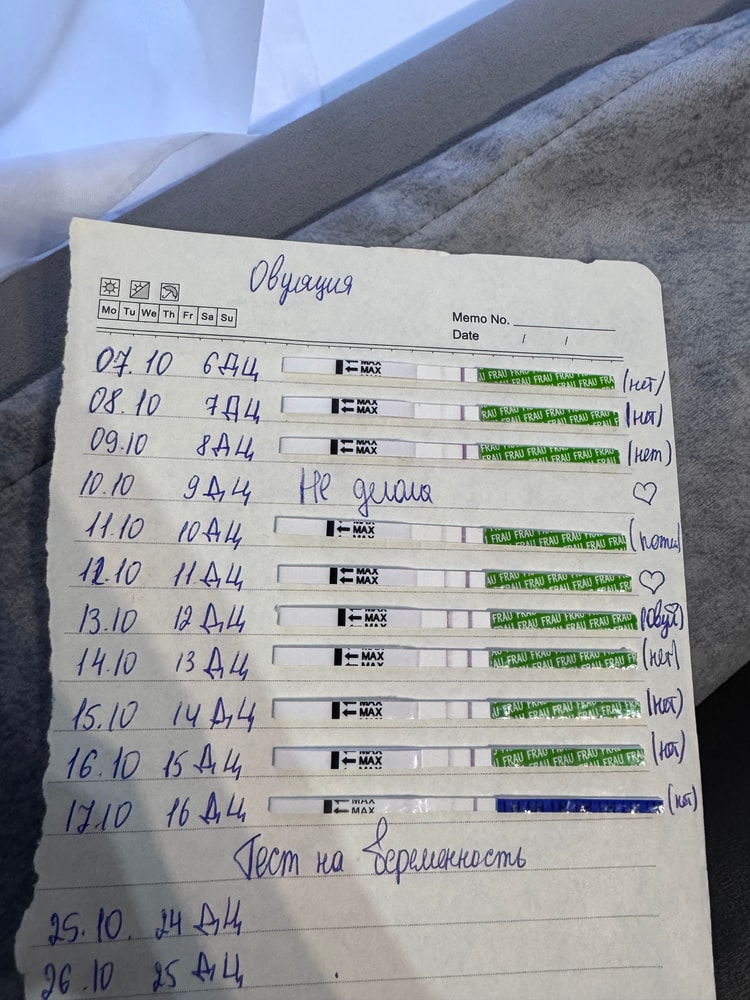 Овуляция
Mo Tu We Th Fr Sa Su
Memo No.
Date / /
07.10 6ДЦ MAX MAX FRAU FRAU FRAU FRAU (нет)
08.10 7ДЦ MAX MAX FRAU FRAU FRAU FRAU (нет)
09.10 8ДЦ MAX MAX FRAU FRAU FRAU FRAU (нет)
10.10 9ДЦ Не делала ♡
11.10 10ДЦ MAX MAX FRAU FRAU FRAU FRAU
12.10 11ДЦ MAX MAX FRAU FRAU FRAU FRAU ♡
13.10 12ДЦ MAX MAX FRAU FRAU FRAU FRAU
14.10 13ДЦ MAX MAX FRAU FRAU FRAU FRAU (нет)
15.10 14ДЦ MAX MAX FRAU FRAU FRAU FRAU (нет)
16.10 15ДЦ MAX MAX FRAU FRAU FRAU FRAU (нет)
17.10 16ДЦ MAX MAX (нет)
Тест на беременность
25.10. 24ДЦ
26.10 25ДЦ